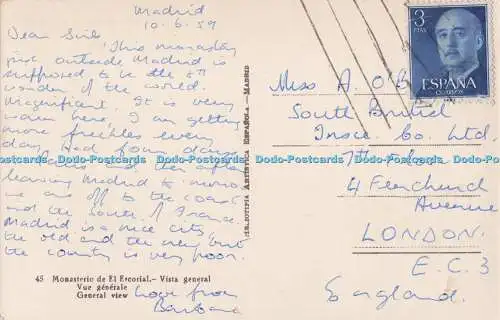 Madrid
10.6.59
Dear Girls
This monastery
just outside Madrid is
supposed to be the 8th
wonder of the world.
Magnificent. It is very
warm here, I am getting
more freckles every
day. Had four days
in Paris and then after
leaving Madrid to-morrow
we are off to the coast
and the South of France.
Madrid is a nice city
the old and the new but
the country is very poor.
love from
Barbara
45 Monasterio de El Escorial.- Vista general
Vue générale
General view
ARTISTICA ESPAÑOLA - MADRID
3
PTAS
ESPAÑA
CORREOS
Miss A O'B
South British
Insce Co. Ltd.
7th Floor
4 Fenchurch
Avenue
LONDON.
E.C.3
England.
Dodo-Postcards Dodo-Postcards Dodo-Postcards Dodo-Postcards Dodo-Postcards Dodo-Postcards